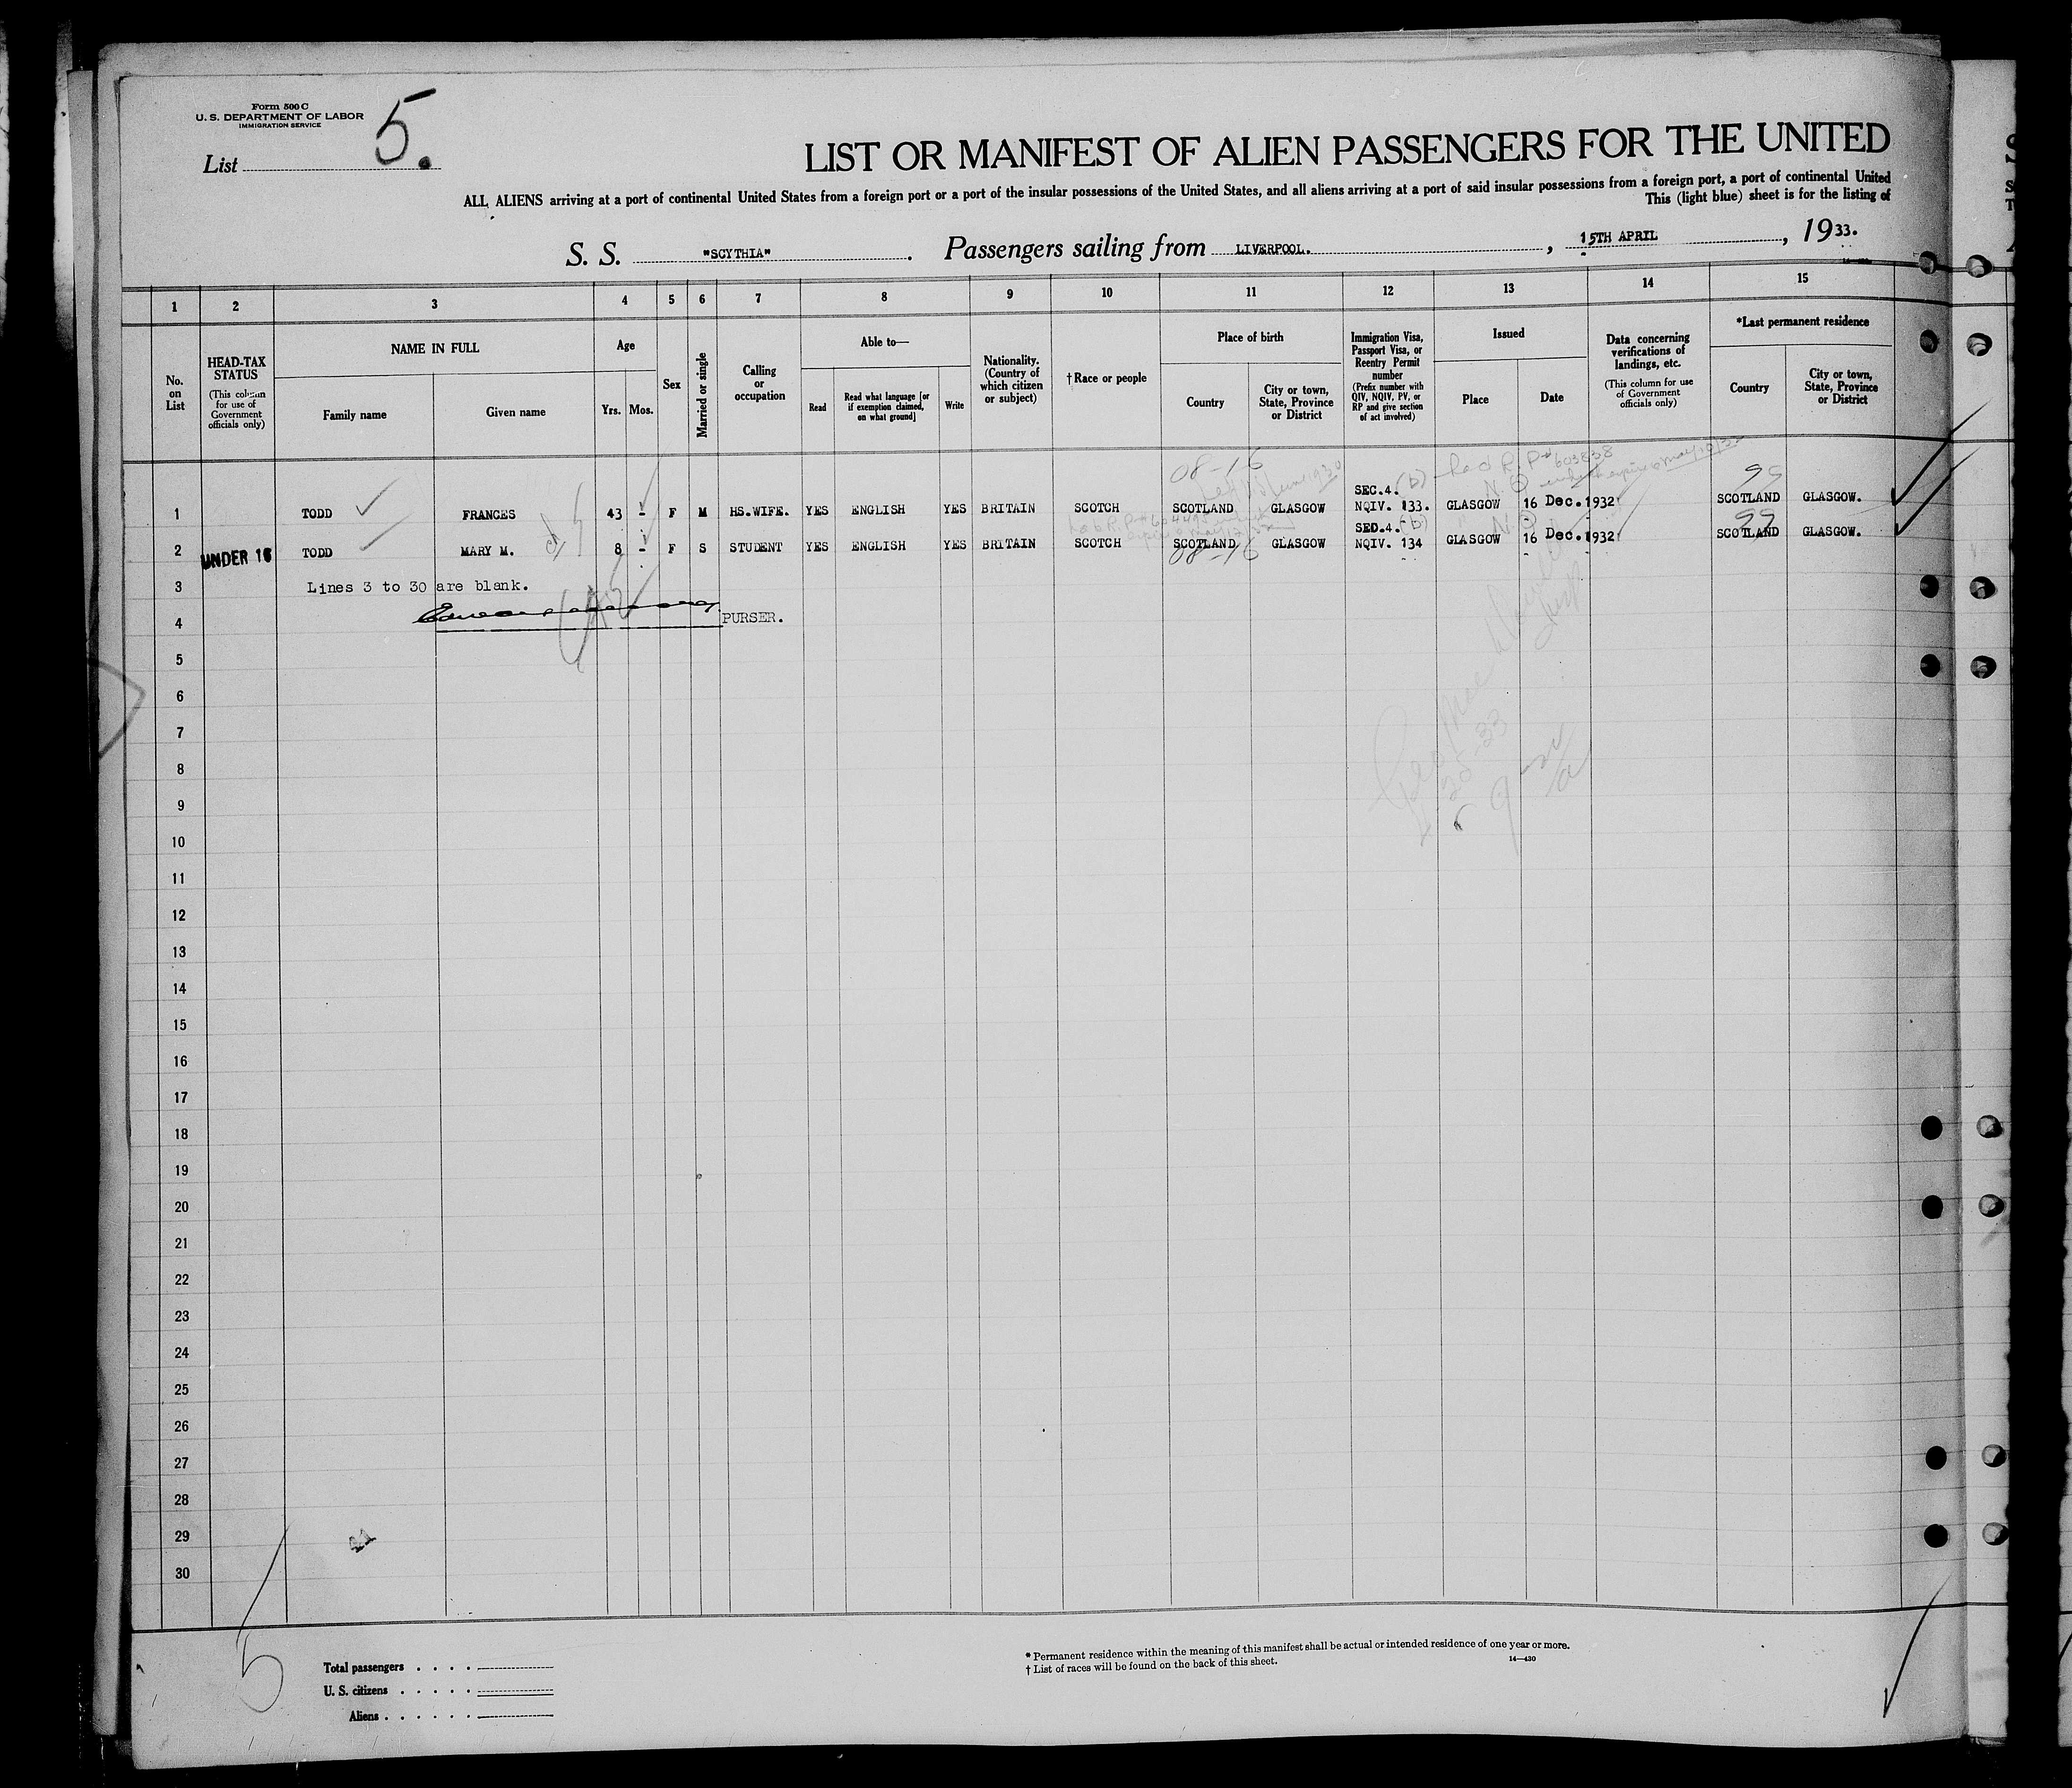 Form 500 C
U. S. DEPARTMENT OF LABOR
IMMIGRATION SERVICE
List 5.
LIST OR MANIFEST OF ALIEN PASSENGERS FOR THE UNITED
ALL ALIENS arriving at a port of continental United States from a foreign port or a port of the insular possessions of the United States, and all aliens arriving at a port of said insular possessions from a foreign port, a port of continental United
This (light blue) sheet is for the listing of
S. S. "SCYTHIA". Passengers sailing from LIVERPOOL., 15TH APRIL, 1933.
1 2 3 4 5 6 7 8 9 10 11 12 13 14 15
No. on List
HEAD-TAX STATUS (This column for use of Government officials only)
NAME IN FULL
Family name
Given name
Age
Yrs. Mos.
Sex
Married or single
Calling or occupation
Able to—
Read
Read what language [or if exemption claimed, on what ground]
Write
Nationality. (Country of which citizen or subject)
† Race or people
Place of birth
Country
City or town, State, Province or District
Immigration Visa, Passport Visa, or Reentry Permit number (Prefix number with QIV, NQIV, PV, or RP and give section of act involved)
Issued
Place
Date
Data concerning verifications of landings, etc. (This column for use of Government officials only)
*Last permanent residence
Country
City or town, State, Province or District
08-16
(b) had R.P# 603838
99
SEC.4.
1 TODD FRANCES 43 - F M HS.WIFE. YES ENGLISH YES BRITAIN SCOTCH SCOTLAND GLASGOW NQIV. 133. GLASGOW 16 Dec.1932 SCOTLAND GLASGOW.
SED.4. (b)
99
2 UNDER 16 TODD MARY M. 8 - F S STUDENT YES ENGLISH YES BRITAIN SCOTCH SCOTLAND GLASGOW NQIV. 134 GLASGOW 16 Dec.1932 SCOTLAND GLASGOW.
08-16
3 Lines 3 to 30 are blank.
4 PURSER.
5
6
7
8
9
10
11
12
13
14
15
16
17
18
19
20
21
22
23
24
25
26
27
28
29
30
5
Total passengers . . . .
U. S. citizens . . . . .
Aliens . . . . . .
* Permanent residence within the meaning of this manifest shall be actual or intended residence of one year or more.
† List of races will be found on the back of this sheet.
14—430